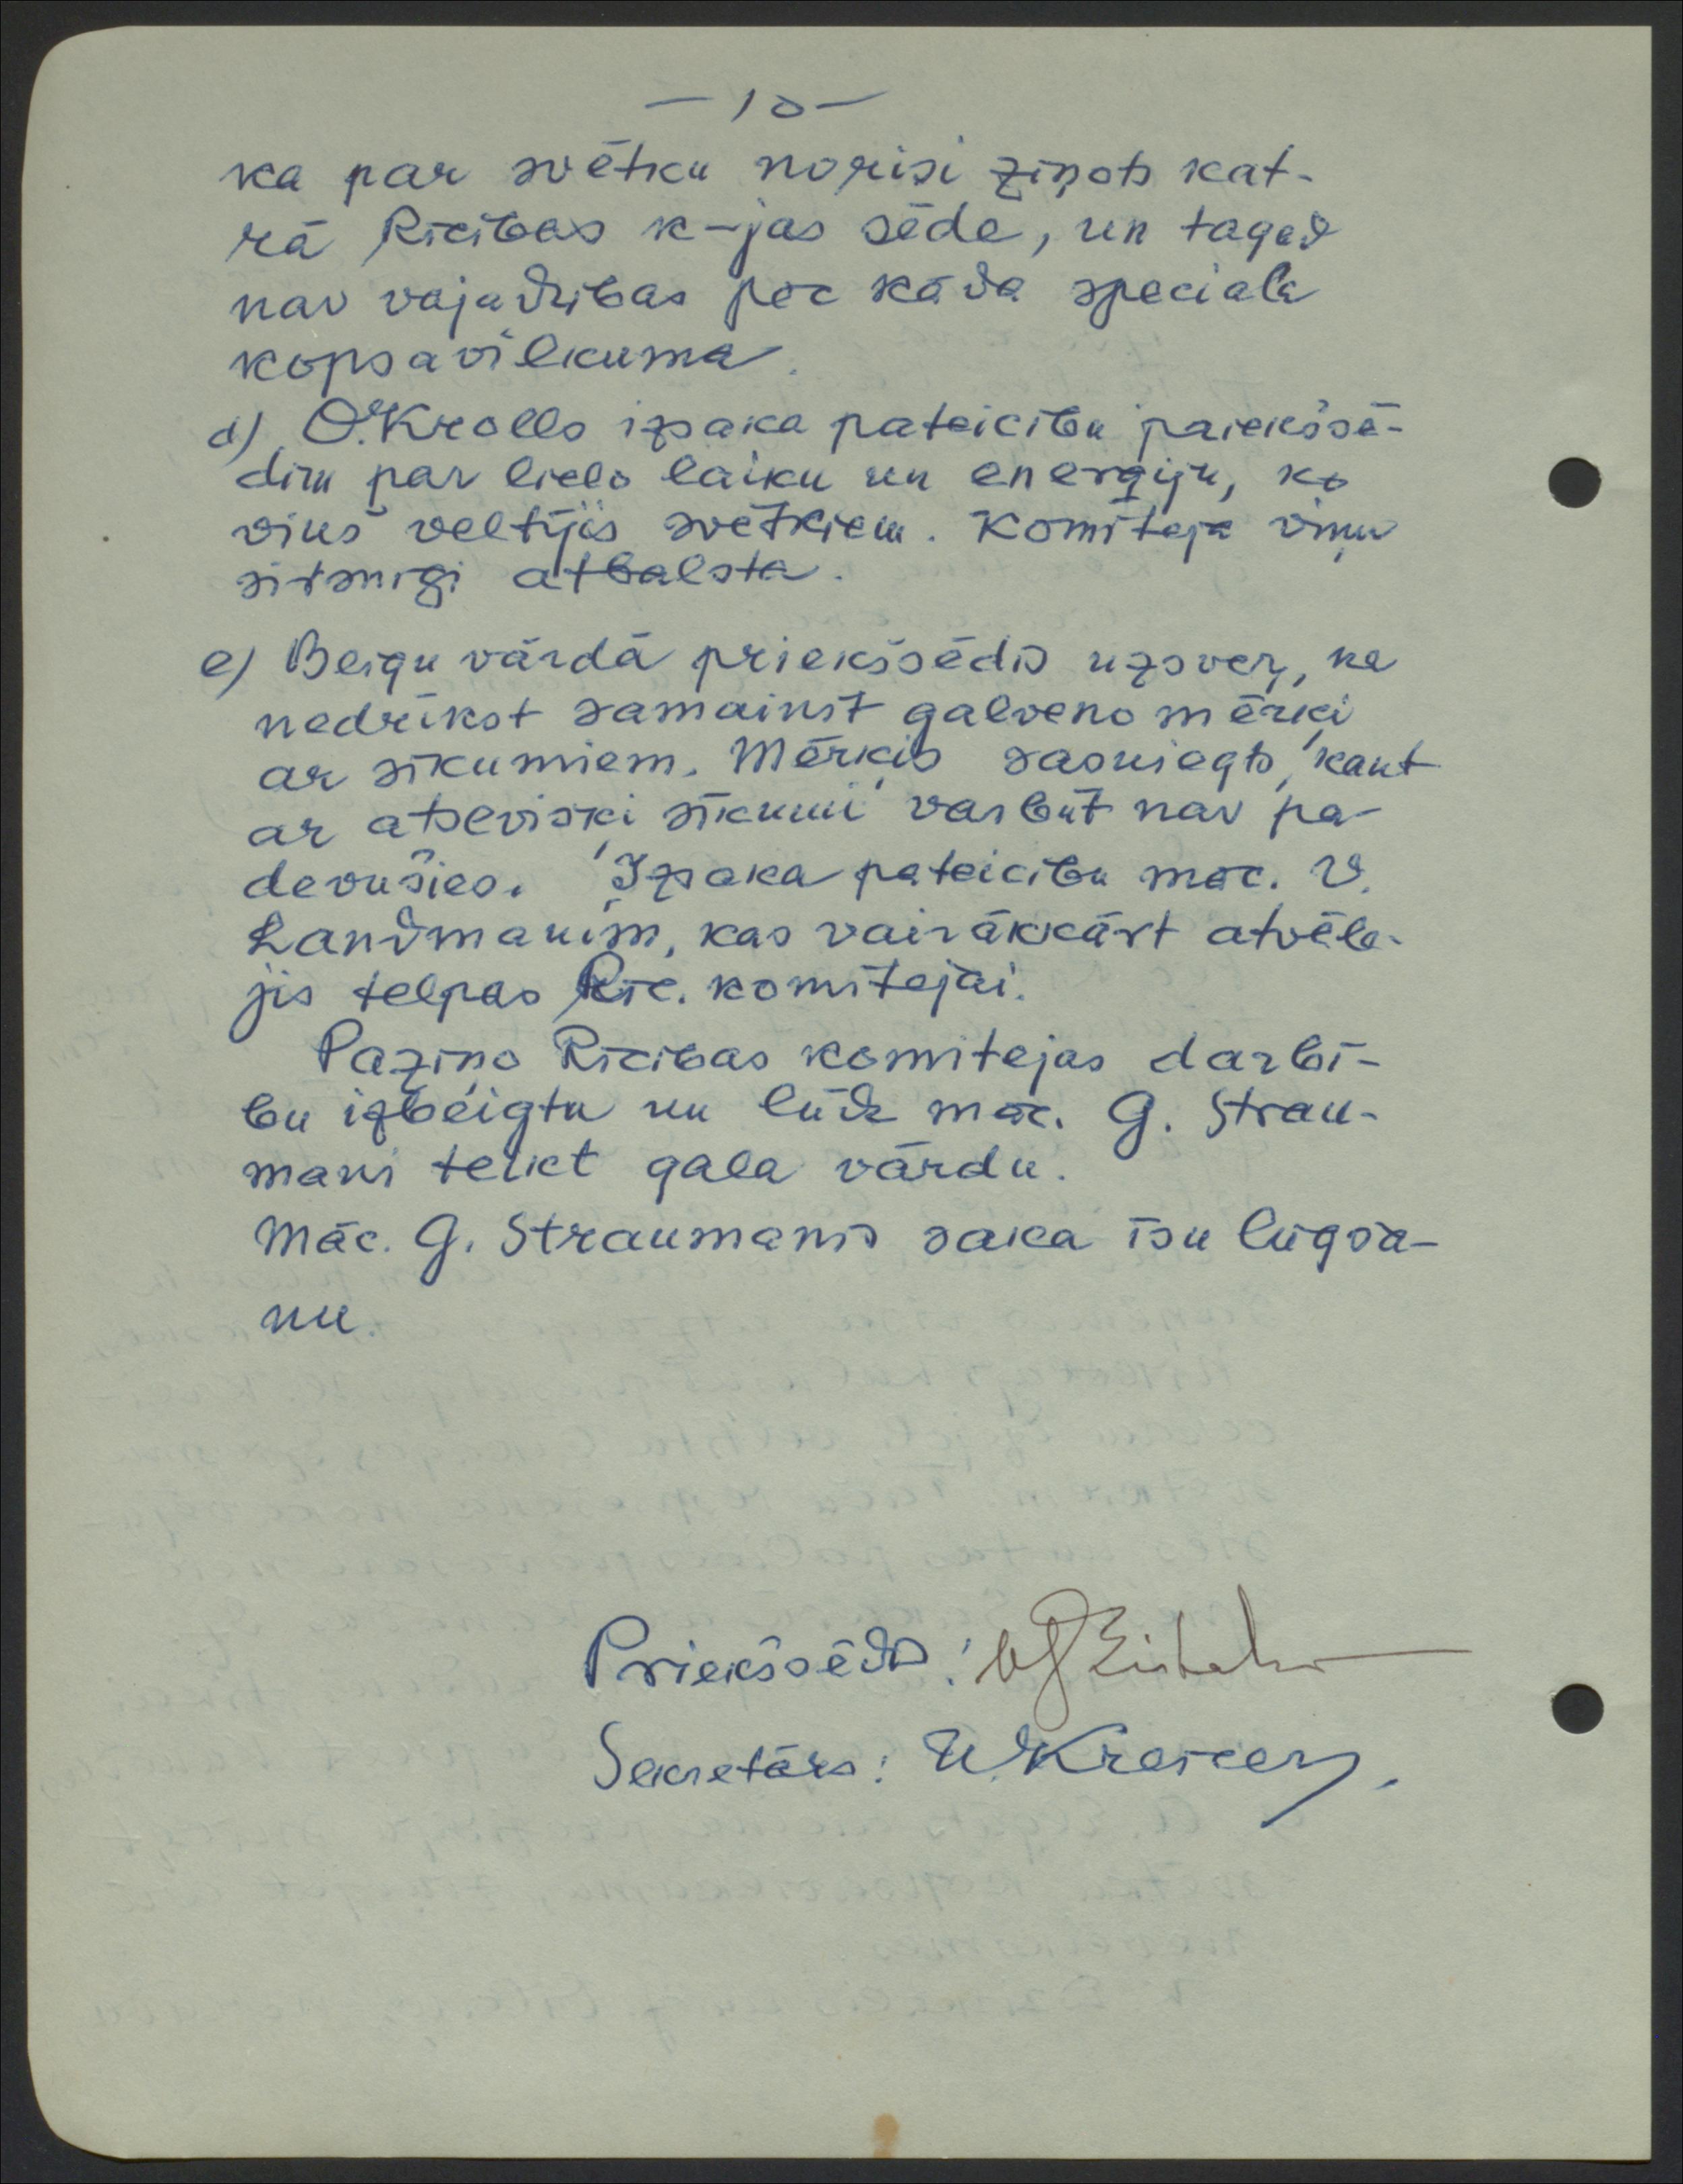 — 10 —
ka par svētku norisi ziņots kat-
rā Rīcības k-jas sēdē, un tagad
nav vajadzības pēc kāda speciala
kopsavilkuma.
d) O. Krolls izsaka pateicību priekšsē-
dim par lielo laiku un energiju, ko
viņš veltījis svētkiem. Komiteja viņu
sirsnīgi atbalsta.
e) Beigu vārdā priekšsēdis uzsver, ka
nedrīkst samainīt galveno mērķi
ar sīkumiem. Mērķis sasniegts, kaut
ar atsevišķi sīkumi varbūt nav pa-
devušies. Izsaka pateicību māc. V.
Landmanim, kas vairākkārt atvēlē-
jis telpas Rīc. komitejai.
Paziņo Rīcības komitejas darbī-
bu izbeigtu un lūdz māc. G. Strau-
mani teikt gala vārdu.
Māc. G. Straumanis saka īsu lūgša-
nu.
Priekšsēdis:
Sekretārs: